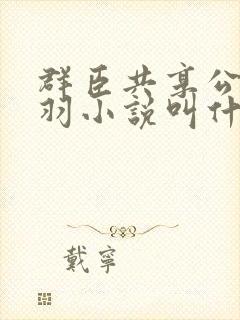 群臣共享公
羽小說叫什
戴寧